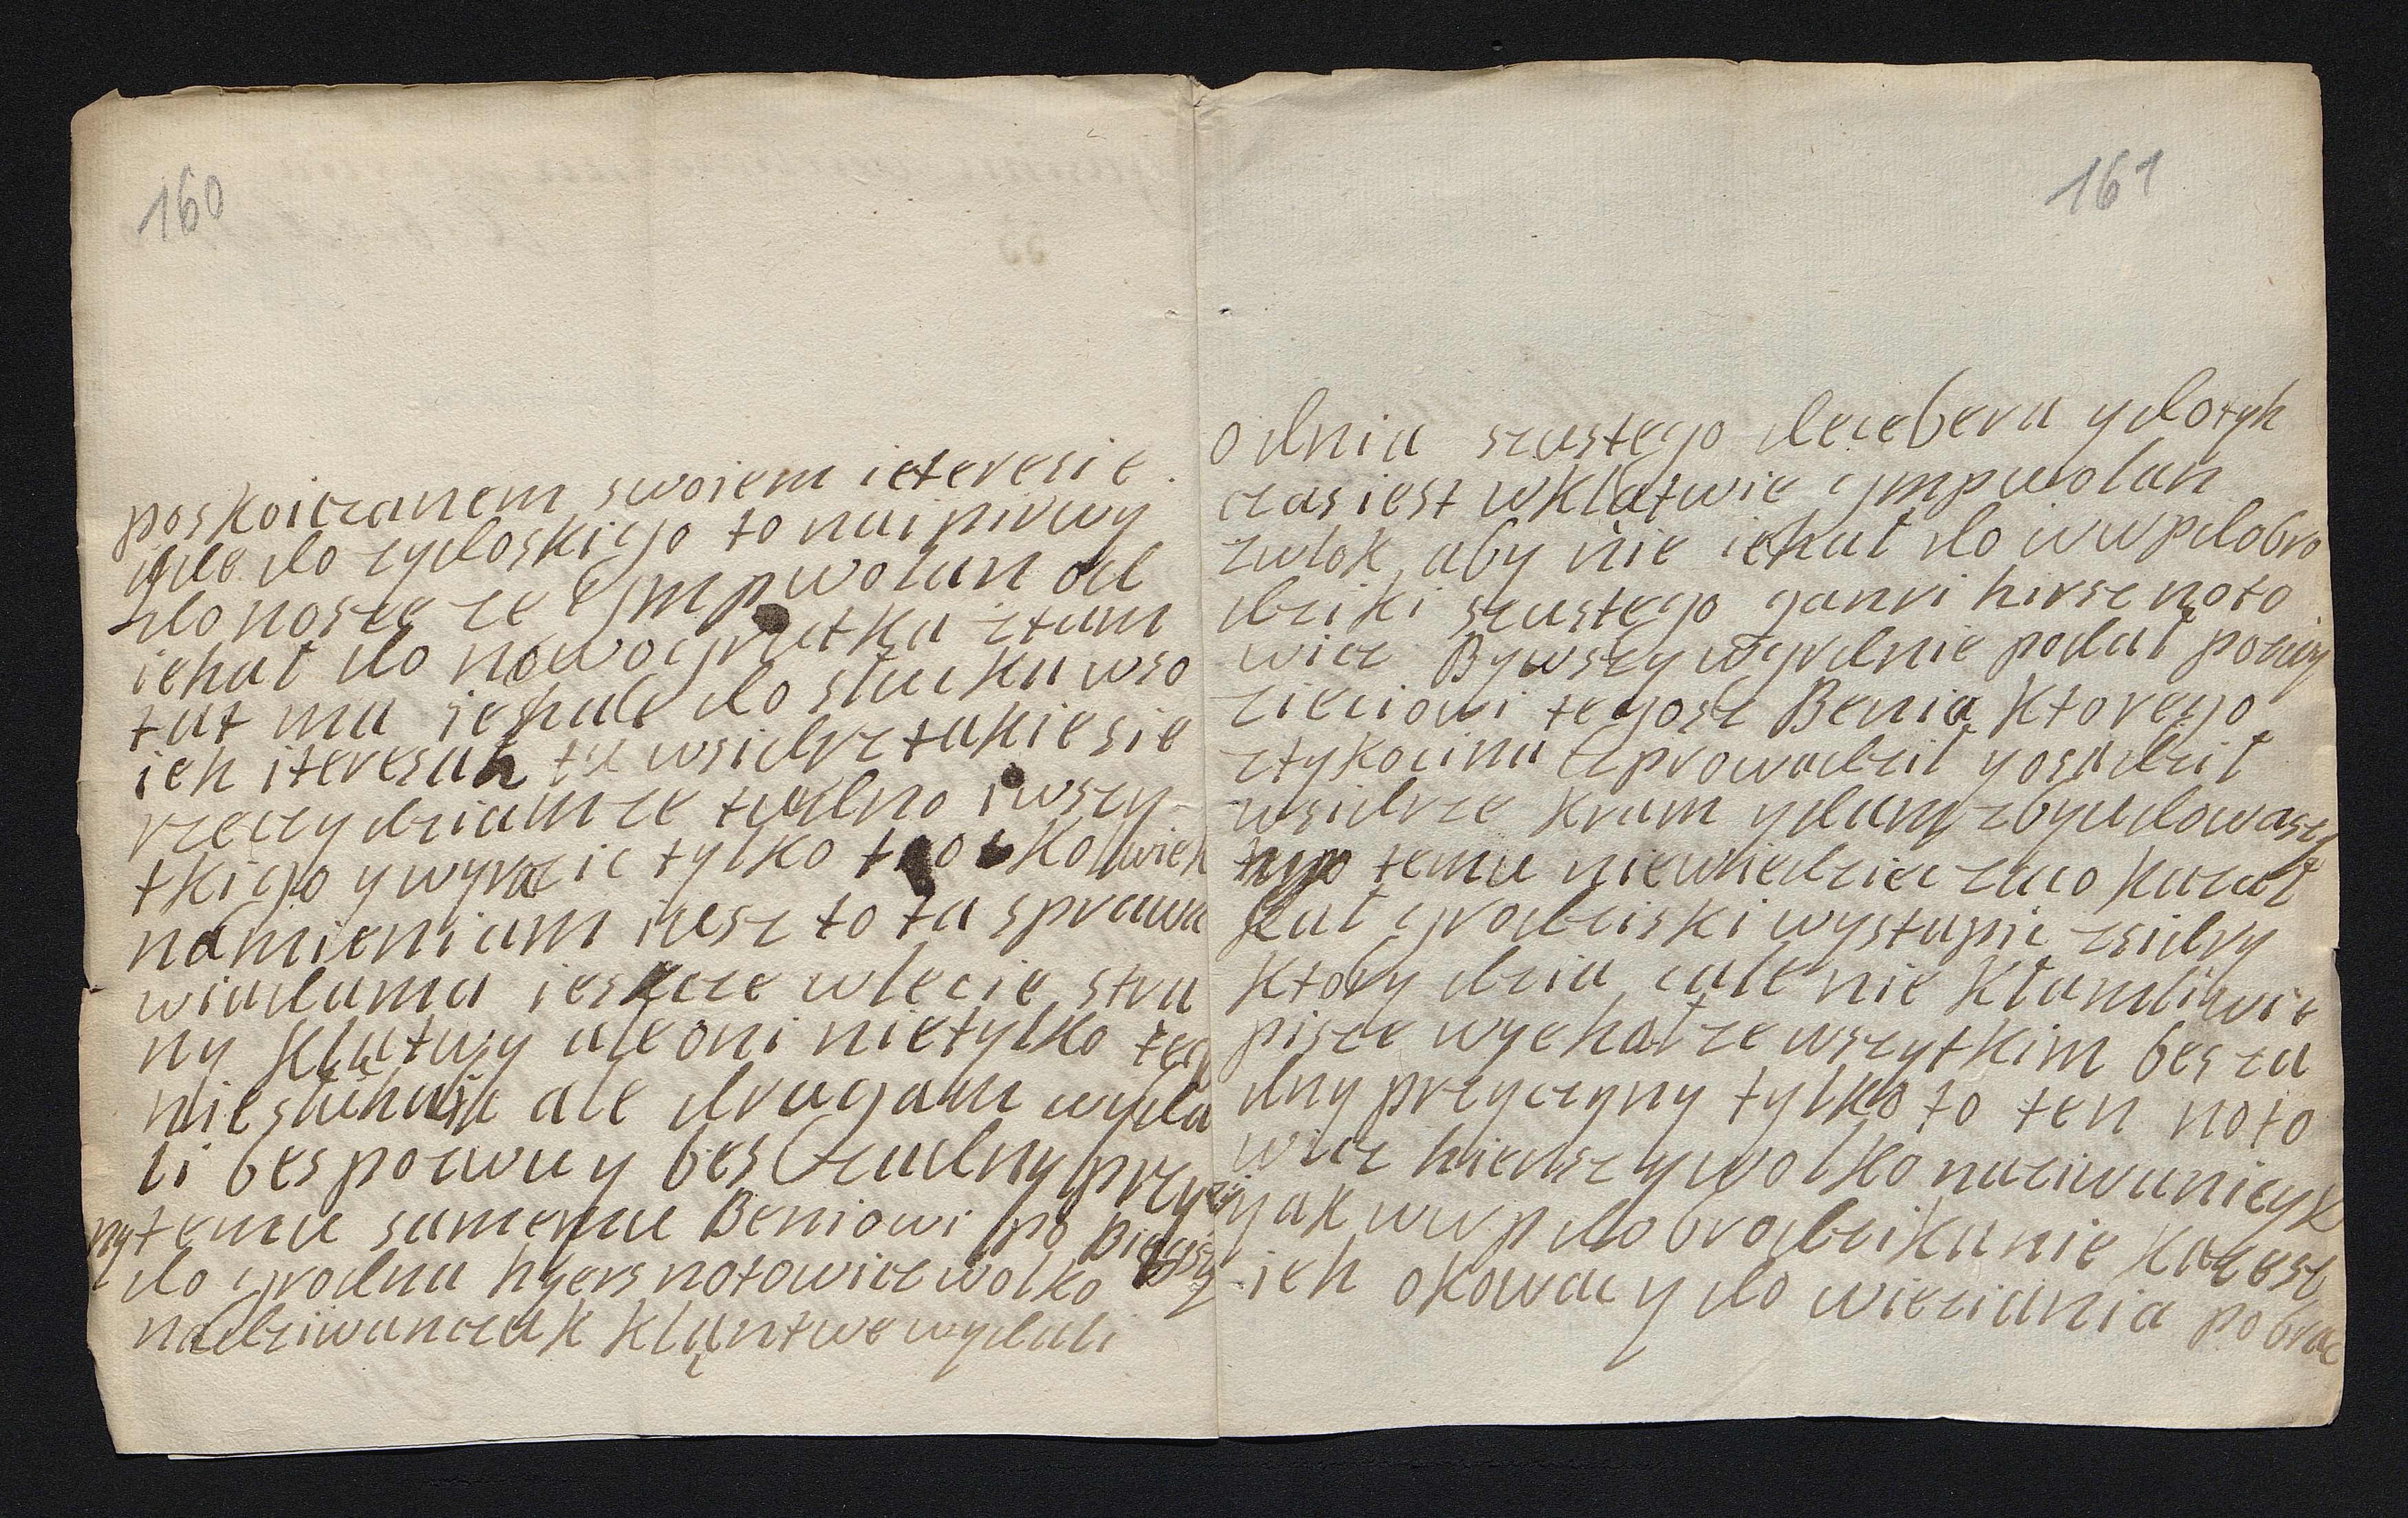 160
poskoiczanem swoiem ieteresie
ide do zydloskiego to nai pirwy
donosze ze Jmp wolan od
iehał do nowogrutka ztam
tat ma iehać do słucka wso
ich iteresah tu wsidrz takie sie
rzeczy dziam ze trudno i wszy
tkiego y wyrazic tylko
namieniam iusz to ta sprawa
wiadama ieszcze wlecie stra
ny klątwy ale oni nie tylko tegy
nie słuhaja ale drugam wyda
li bes pozwu y bes zadny przyczy
ny temu samemu Beniowi po
do grodna hyers notowicz wolko
nadziwanczak kląntwe wydali
161
odnia szustego decebera y dotyh
czas iest wklatwie ympwolan
zwlok aby nie iehał do iwwp dobro
dziki szustego ganri hirsz noto
wicz Bywszy wgrdnie podał pozwy
zieciowi tegosz Benia ktorego
ztykocina sprowadził y osadził
wsidrze kram y dam zbyudowaszy
temu niewiedziec zaco kazał
kał grodziski wystapic zsidry
ktory dzia cale nie kłamliwie
pisze wyehał ze wszytkim bes za
dny przyczyny tylko to ten noto
wicz hierszy wolko naziwaniczyk
yak wwp dobrodzika nie kazesz
ich okowac y do wiezienia pobrac